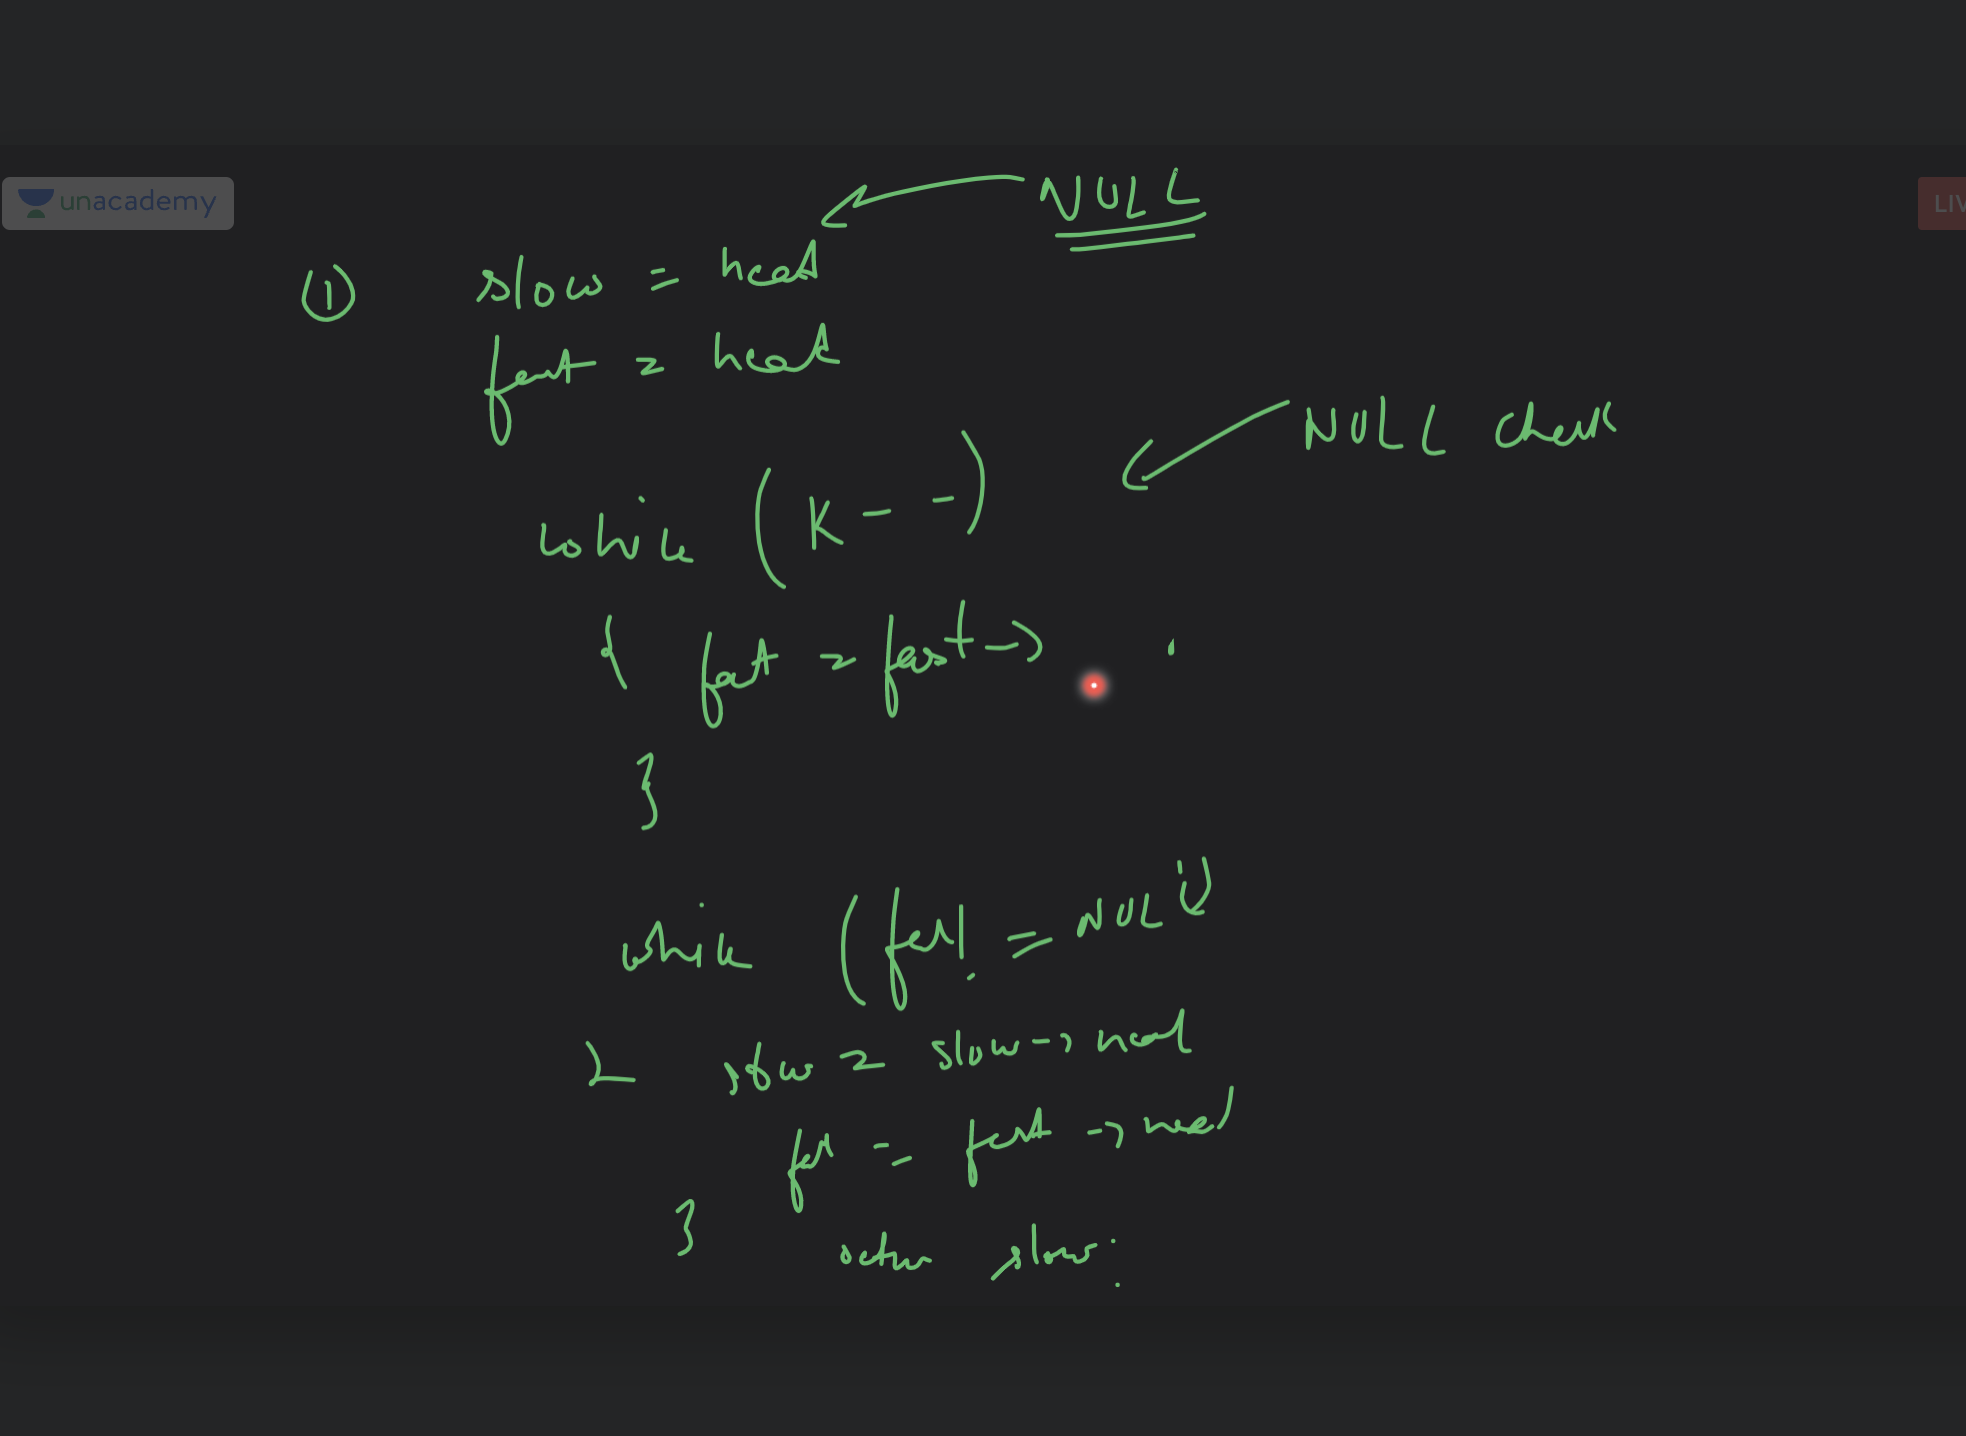 unacademy
LIV
NULL
① slow = head
fast = head
NULL check
while (K--)
{ fast = fast →
}
while (fast != NULL)
{ slow = slow → next
fast = fast → next
}
return slow;